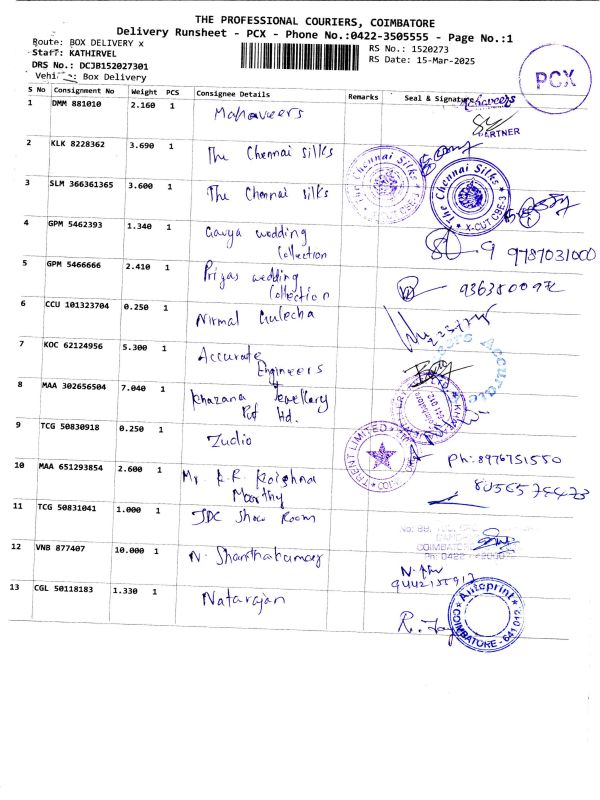 THE PROFESSIONAL COURIERS, COIMBATORE
Delivery Runsheet - PCX - Phone No.:0422-3505555 - Page No.:1
Route: BOX DELIVERY x
RS No.: 1520273
Staff: KATHIRVEL
RS Date: 15-Mar-2025
DRS No.: DCJB152027301
Vehi Box Delivery
PCX
S No Consignment No Weight PCS Consignee Details Remarks Seal & Signature
1 DMM 881010 2.160 1 Mahaveers
PARTNER
2 KLK 8228362 3.690 1 The Chennai silks
The Chennai Silks
3 SLM 366361365 3.600 1 The Chennai silks
The Chennai Silks X-CUT CBE-3
4 GPM 5462393 1.340 1 Gavya wedding
Collection
9787031000
5 GPM 5466666 2.410 1 Priyas wedding
Collection
6 CCU 101323704 0.250 1 Nirmal Gulecha
7 KOC 62124956 5.300 1 Accurate
Engineers
Accurate
8 MAA 302656504 7.040 1 Khazana Jewellery
Pvt ltd.
9 TCG 50830918 0.250 1 Zudio
TRENT LIMITED
Ph: 8976751550
10 MAA 651293854 2.600 1 Mr. K.R. Koishna
Moorthy
8056575473
11 TCG 50831041 1.000 1 JDC Show Room
COIMBATORE
12 VNB 877407 10.000 1 N. Shanthakumar
13 CGL 50118183 1.330 1 Natarajan
Autoprint
COIMBATORE - 641 012